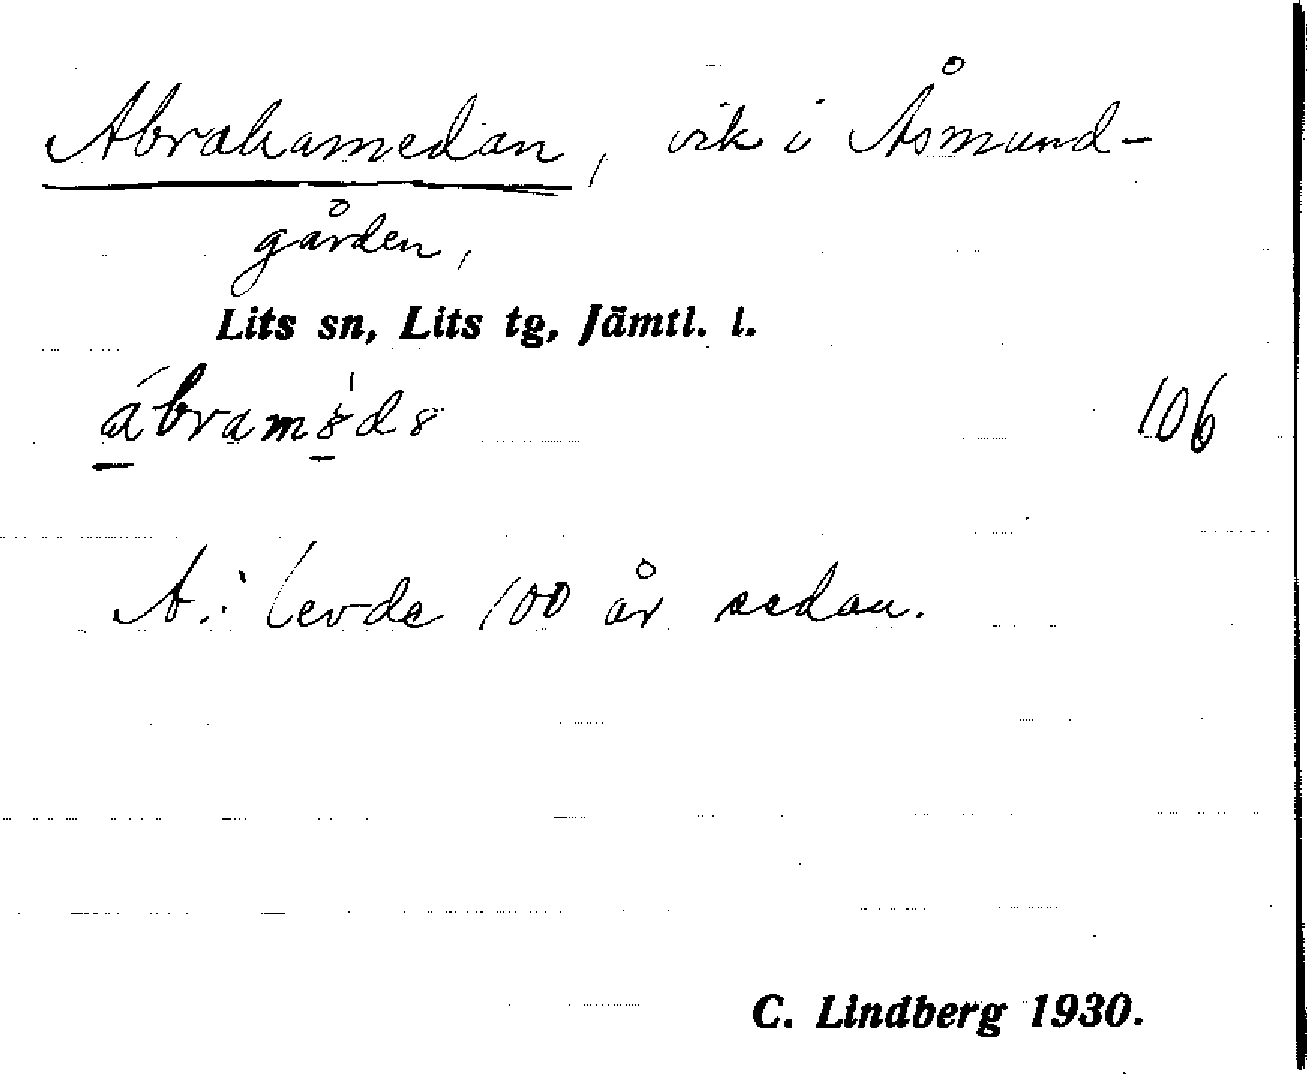 Abrahamedan, vik i Åsmund-
gården,
Lits sn, Lits tg, Jämtl. l.
106
A.: levde 100 år sedan.
C. Lindberg 1930.